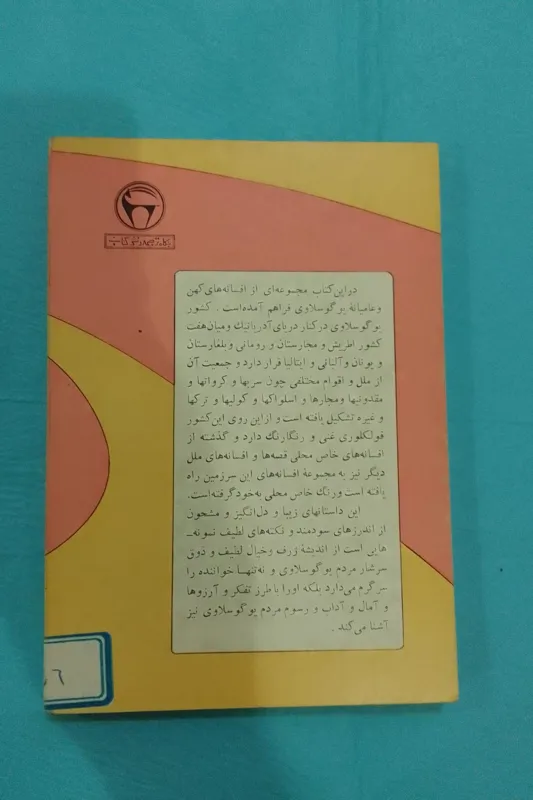 بنگاه ترجمه و نشر کتاب
در این کتاب مجموعه‌ای از افسانه‌های کهن
و عامیانهٔ یوگوسلاوی فراهم آمده‌است . کشور
یوگوسلاوی در کنار دریای آدریاتیك و میان هفت
کشور اطریش و مجارستان و رومانی و بلغارستان
و یونان و آلبانی و ایتالیا قرار دارد و جمعیت آن
از ملل و اقوام مختلفی چون سربها و کرواتها و
مقدونیها و مجارها و اسلواکها و کولیها و ترکها
و غیره تشکیل یافته است و از این روی این کشور
فولکلوری غنی و رنگارنگ دارد و گذشته از
افسانه‌های خاص محلی قصه‌ها و افسانه‌های ملل
دیگر نیز به مجموعهٔ افسانه‌های این سرزمین راه
یافته است و رنگ خاص محلی به‌خود گرفته‌است.
این داستانهای زیبا و دل‌انگیز و مشحون
از اندرزهای سودمند و نکته‌های لطیف نمونه‌ـ
هایی است از اندیشهٔ ژرف و خیال لطیف و ذوق
سرشار مردم یوگوسلاوی و نه‌تنها خواننده را
سرگرم می‌دارد بلکه او را با طرز تفکر و آرزوها
و آمال و آداب و رسوم مردم یوگوسلاوی نیز
آشنا می‌کند .
۶